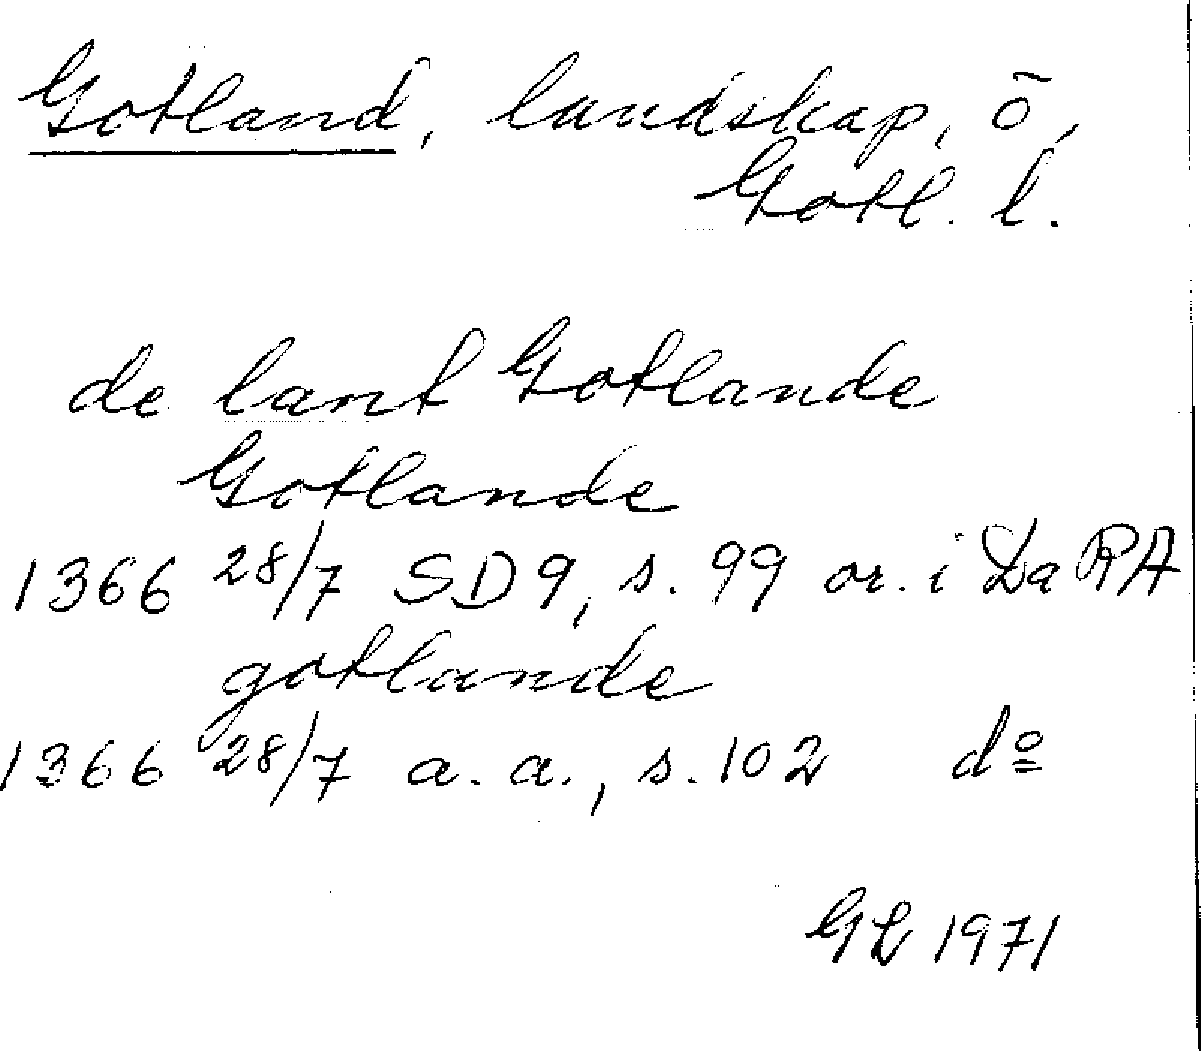 Gotland, landskap, ö,
Gotl. l.
de lant Gotlande
Gotlande
1366 28/7 SD 9, s. 99 or. i Da RA
gotlande
1366 28/7 a. a., s. 102 dº
GL 1971